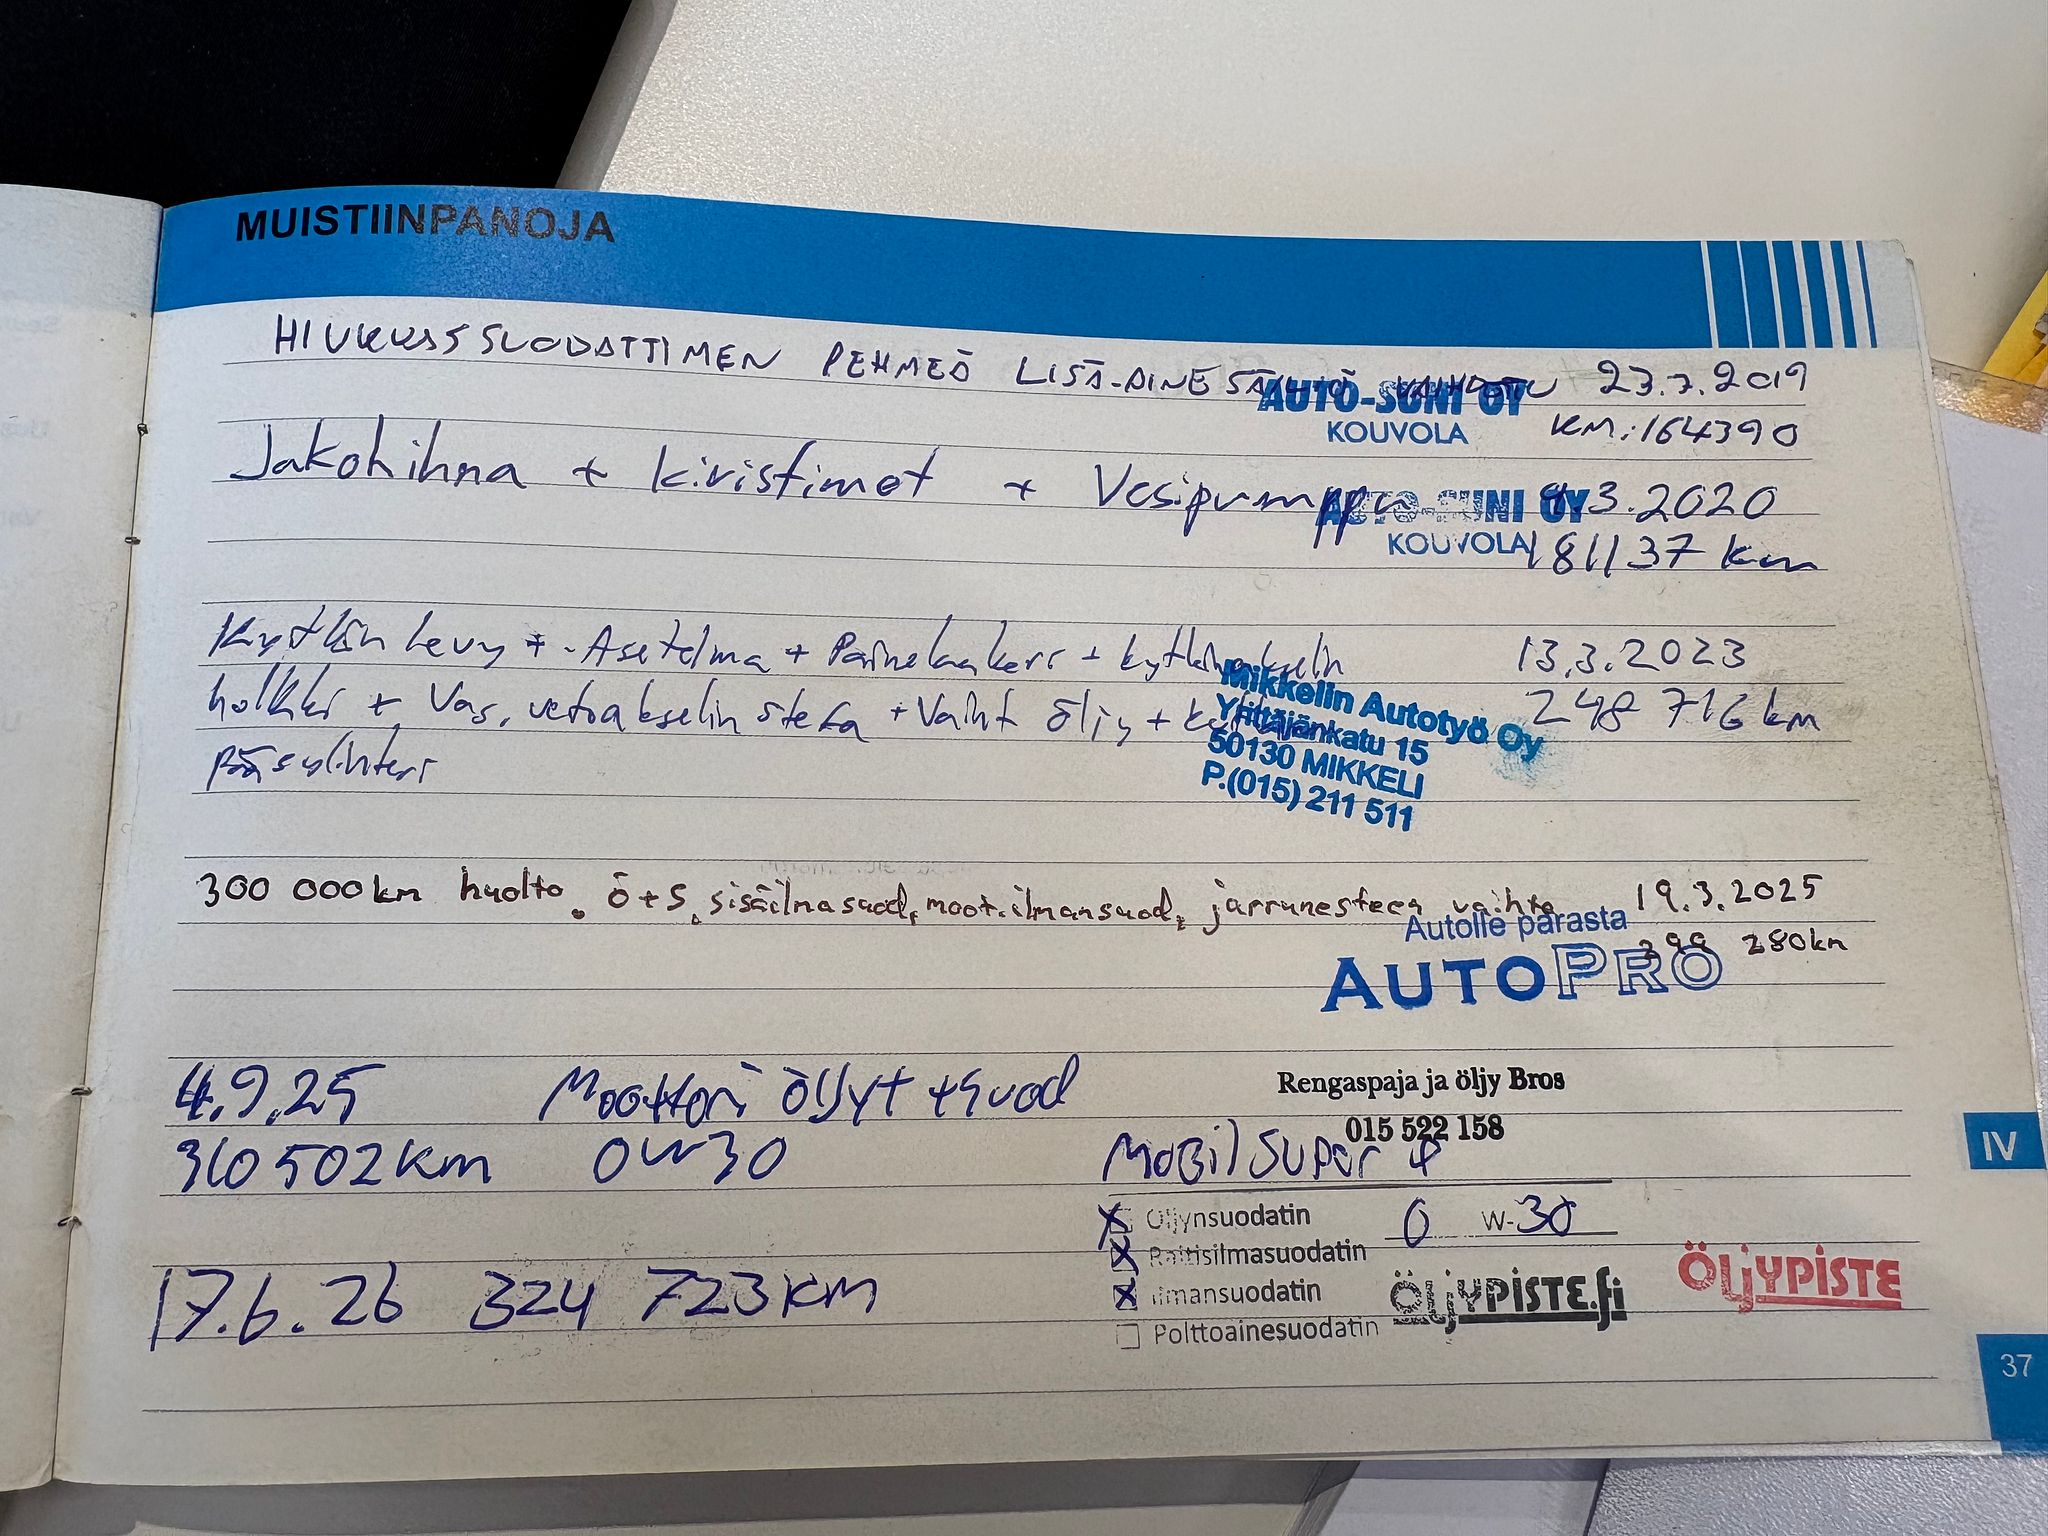 MUISTIINPANOJA
HIUKKASSUODATTIMEN PEHMEÄ LISÄ-AINESÄILIÖ VAIHDETTU 23.7.2019
AUTO-SUNI OY
KOUVOLA
KM:164390
Jakohihna + kiristimet + Vesipumppu 4.3.2020
AUTO-SUNI OY
KOUVOLA
181137 km
Kytkin levy + Asetelma + Painelaakeri + kytkinakselin 13.3.2023
holkki + Vas. vetoakselin stefa + Vaiht öljy + 248 716 km
pääsylinteri
Mikkelin Autotyö Oy
Yrittäjänkatu 15
50130 MIKKELI
P.(015) 211 511
300 000km huolto. ö+s, sisäilmasuod, moot.ilmansuod, jarrunesteen vaihto 19.3.2025
299 280km
Autolle parasta
AUTOPRO
4.9.25 Moottori öljyt +suod
310 502 km 0W30
Rengaspaja ja öljy Bros
015 522 158
MOBIL SUPER
IV
X Öljynsuodatin 0 W-30
X Raitisilmasuodatin
X Ilmansuodatin
Polttoainesuodatin
ÖljYPISTE.fi
ÖljYPISTE
17.6.26 324 723 KM
37